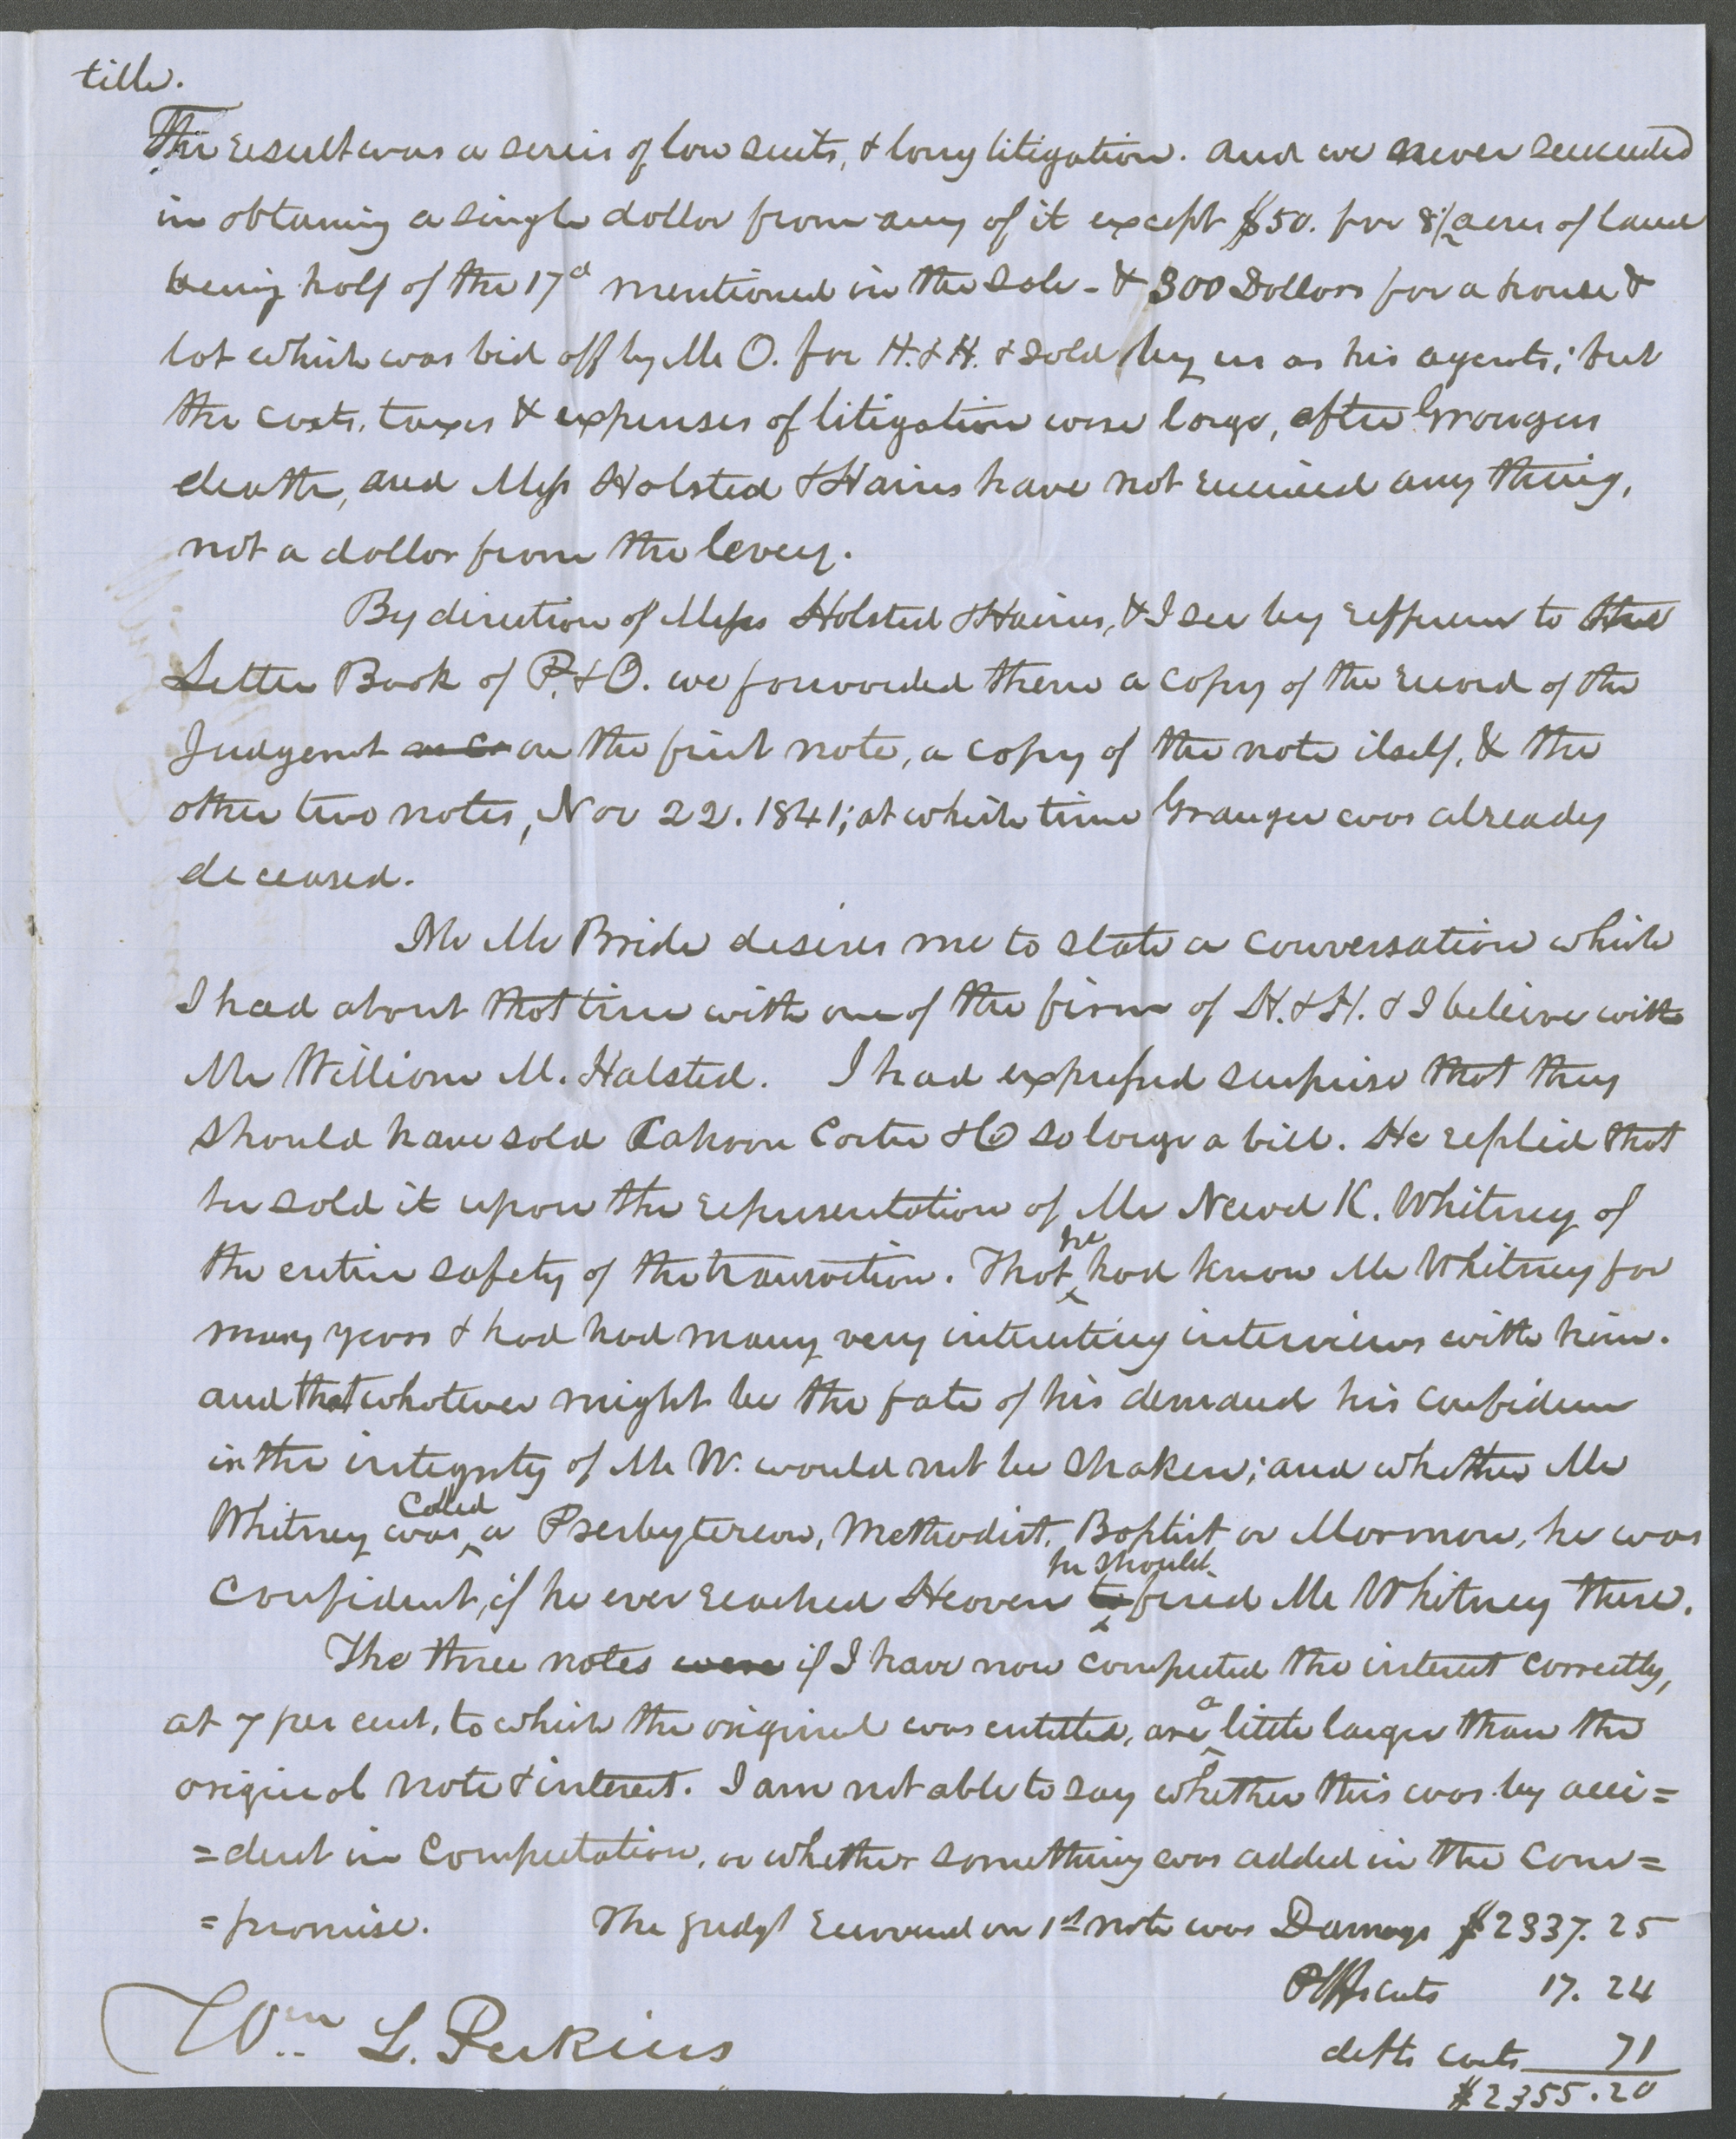 title.
The result was a series of law suits, & long litigation. and we never succeeded
in obtaining a single dollar from any of it except $50. for 8½ acres of land
being half of the 17a mentioned in the sale - & 300 Dollars for a house &
lot which was bid off by Mr O. for H. & H. & sold by us as his agents; but
the costs, taxes & expenses of litigation were large, after Grangers
death, and Mess Halsted & Haines have not received any thing,
not a dollar from the levey.
By direction of Mess Halsted & Haines, & I see by refference to the
Letter Book of P. & O. we forwarded them a copy of the record of the
Judgment on the first note, a copy of the note itself, & the
other two notes, Nov 22. 1841; at which time Granger was already
deceased.
Mr Mc Bride desires me to state a conversation which
I had about that time with one of the firm of H. & H. & I believe with
Mr William M. Halsted. I had expressed surprise that they
should have sold Cahoon Carter & Co so large a bill. He replied that
he sold it upon the representation of Mr Newel K. Whitney of
the entire safety of the transaction. That he had known Mr Whitney for
many years & had had many very interesting interviews with him.
and that whatever might be the fate of his demand his confidence
in the integrity of Mr W. would not be shaken; and whether Mr
Whitney was called a Presbyterean, Methodist, Baptist or Mormon, he was
confident, if he ever reached Heaven to he should find Mr Whitney there.
The three notes were if I have now computed the interest correctly,
at 7 per cent, to which the original was entitled, are a little larger than the
original note & interest. I am not able to say whether this was by acci=
=dent in computation, or whether something was added in the com=
=promise. The judgt recovered on 1st note was Damags $2337.25
Plffs costs 17.24
defts costs 71
$2355.20
Wm. L. Perkins